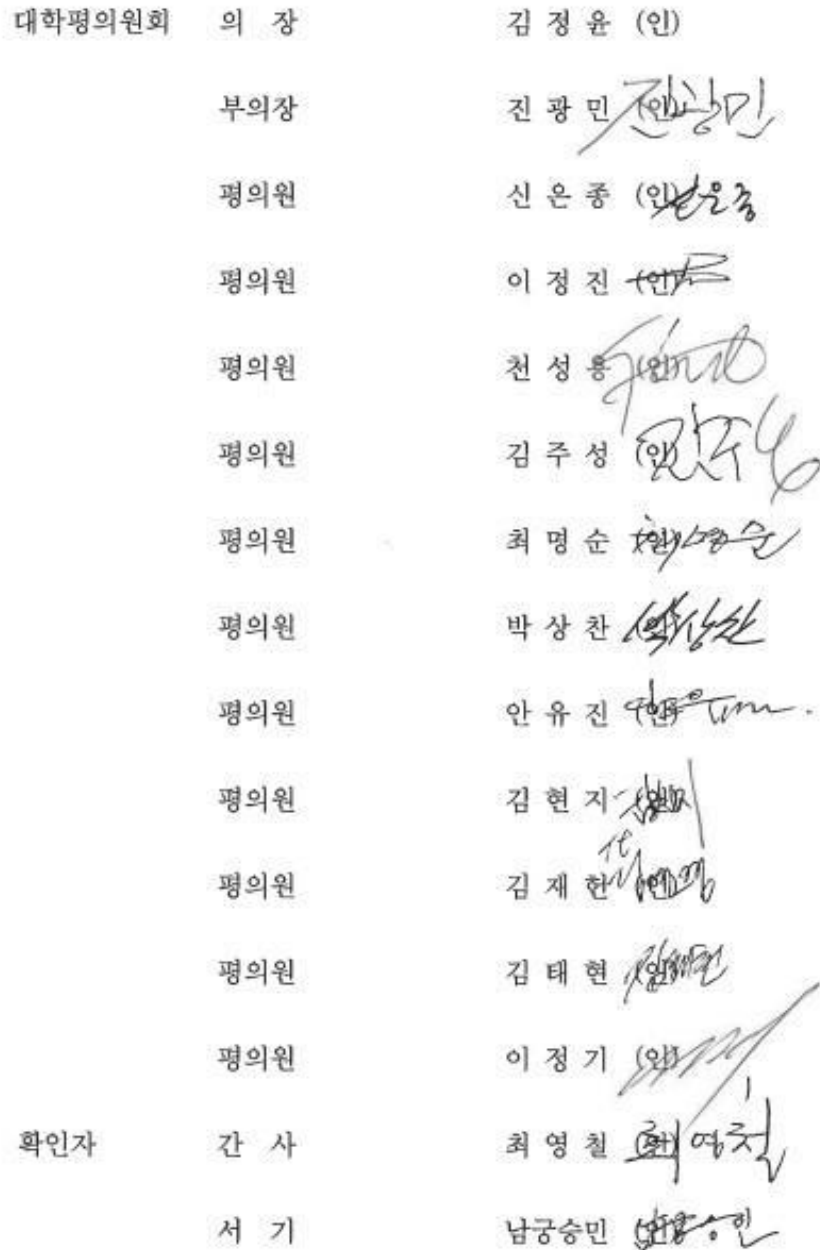 대학평의원회 의 장 김 정 윤 (인)
부의장 진 광 민 (인) 진광민
평의원 신 은 종 (인) 신은종
평의원 이 정 진 (인)
평의원 천 성 용 (인)
평의원 김 주 성 (인)
평의원 최 명 순 (인) 최명순
평의원 박 상 찬 (인) 박상찬
평의원 안 유 진 (인)
평의원 김 현 지 (인)
평의원 김 재 한 (인)
평의원 김 태 현 (인) 김태현
평의원 이 정 기 (인)
확인자 간 사 최 영 철 (인) 최영철
서 기 남궁승민 (인)